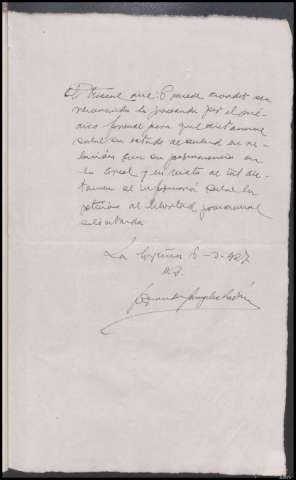 El Fiscal dice: Procede acordar sea
reconocida la procesada por el mé-
dico forense para que dictamine
sobre su estado de salud en re-
lación con su permanencia en
la cárcel y en vista de tal dic-
tamen se informará sobre la
petición de libertad provisional
solicitada
La Coruña 6-3-927